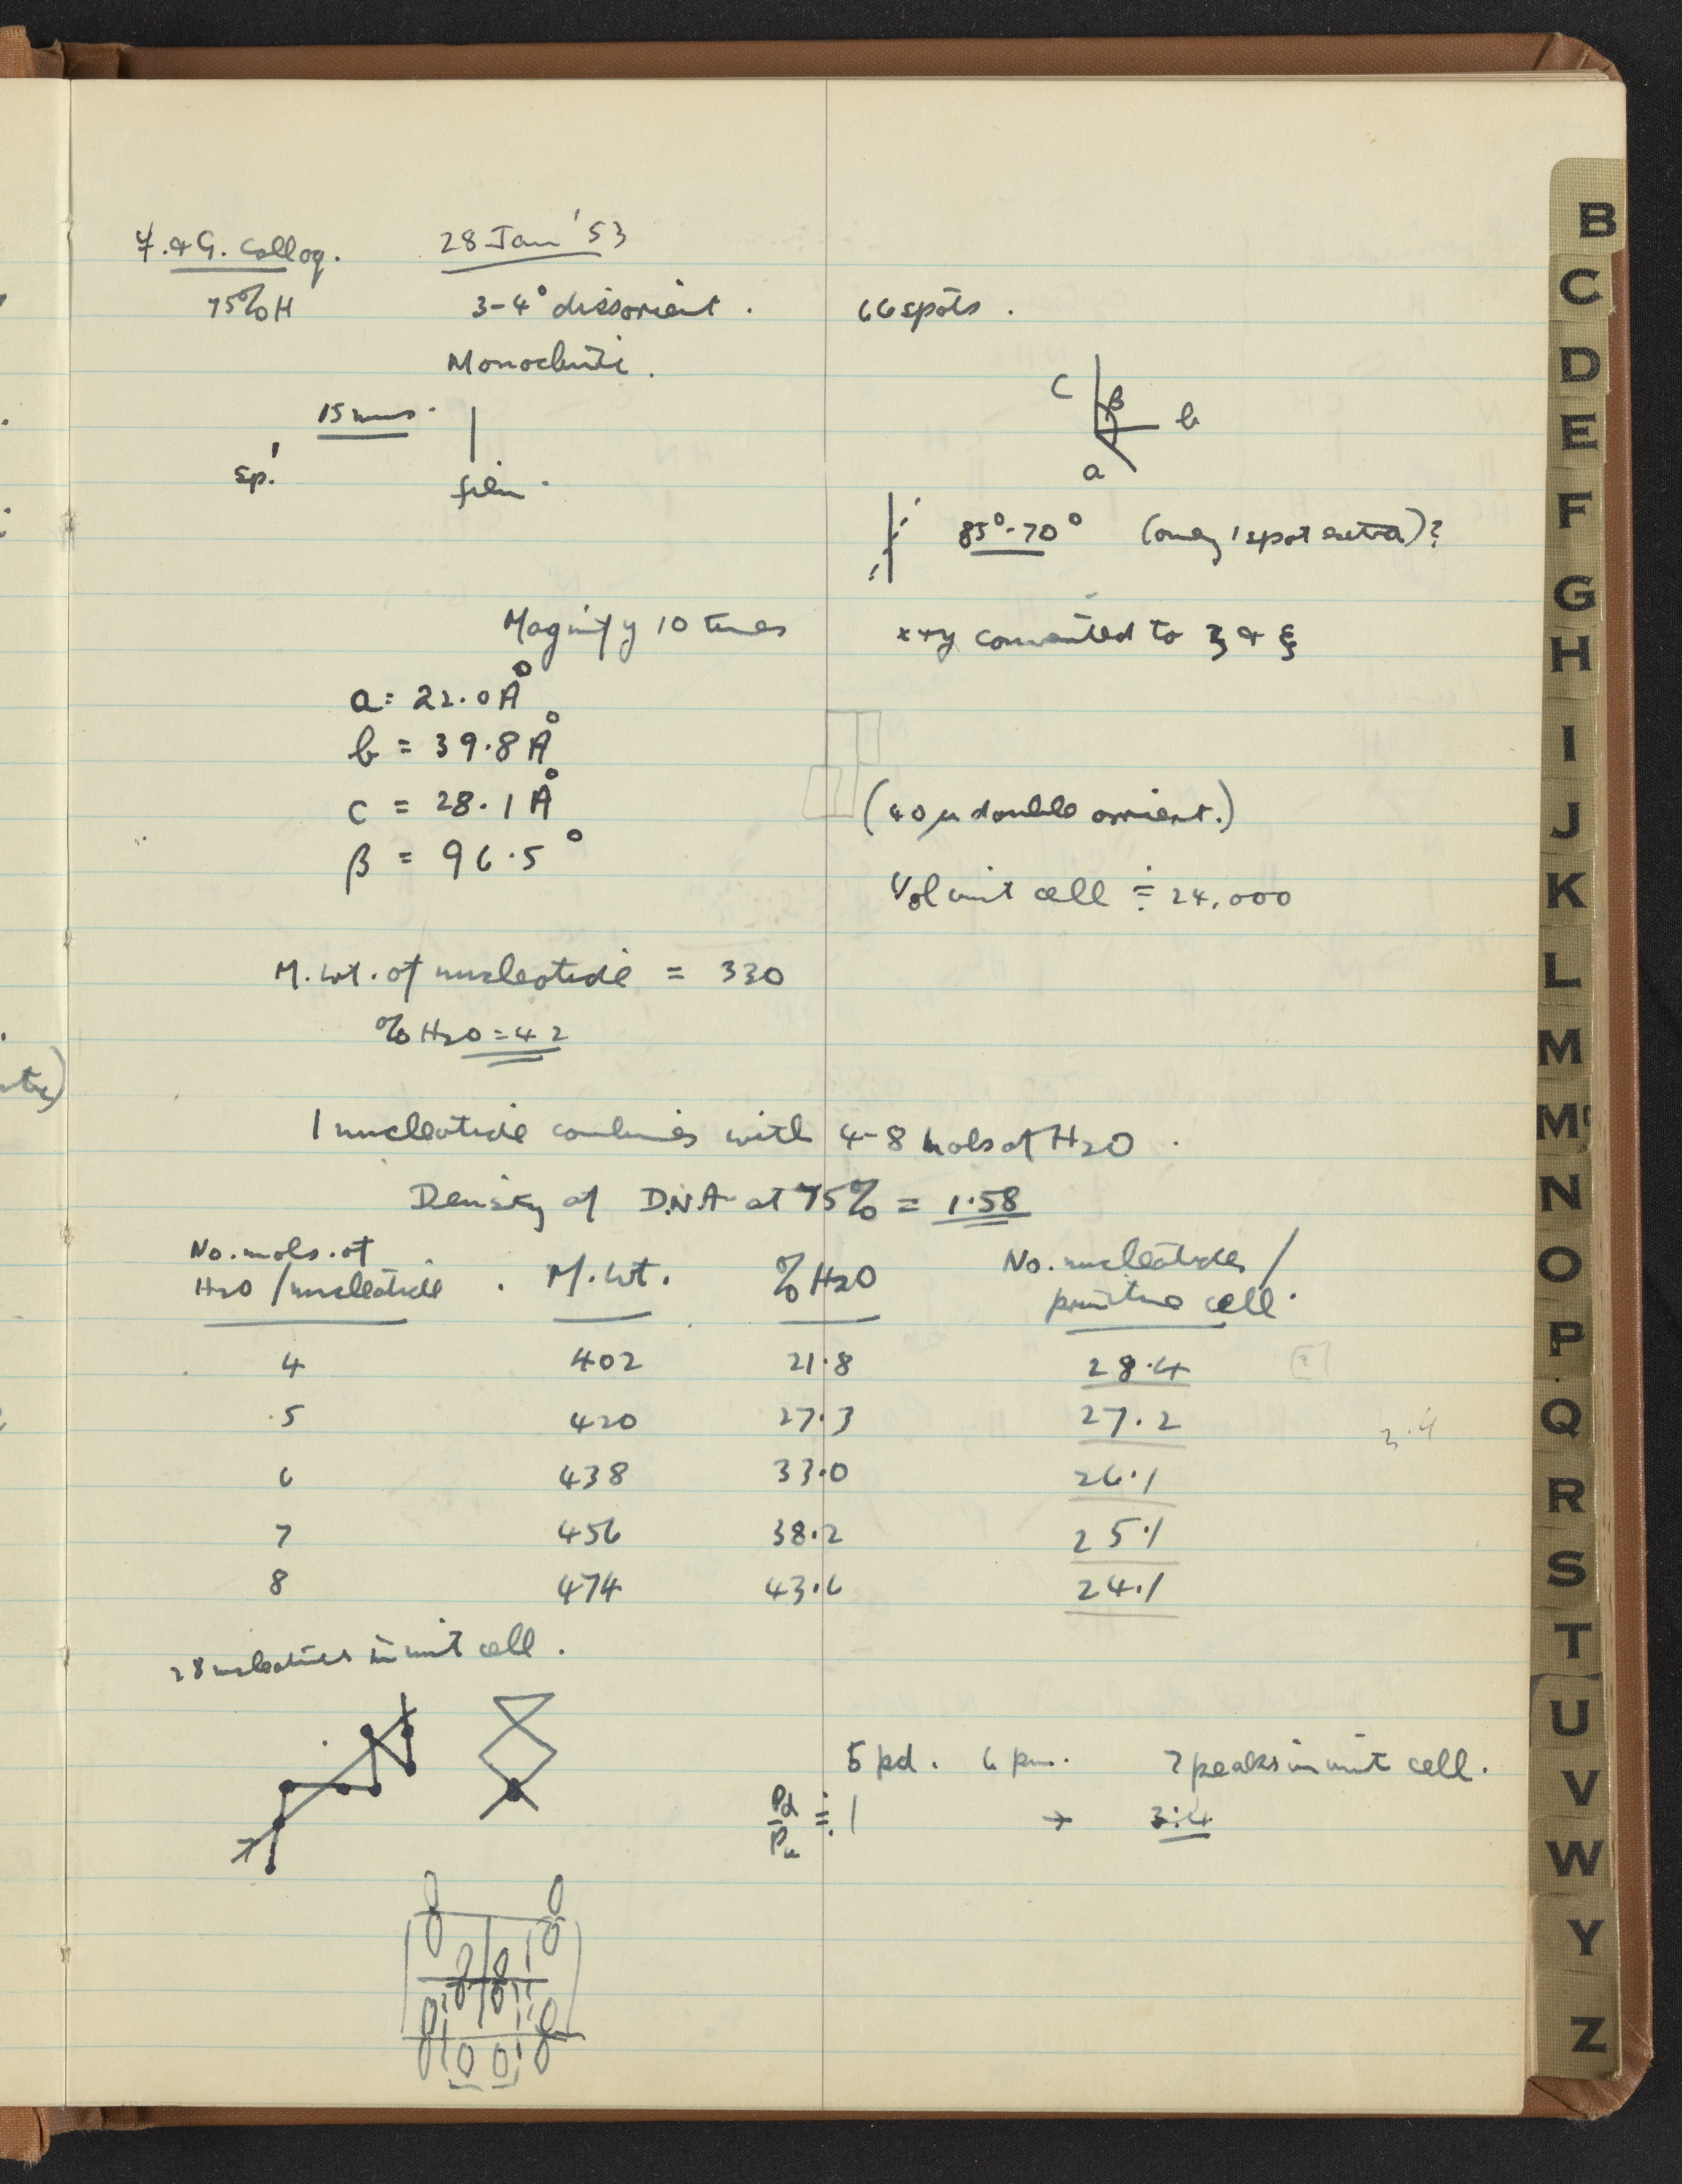 & G. Colloq. 28 Jan '53
75% H 3-4° dissorient. 66 spots.
Monoclinic.
15 mms.
c β b
a
sp. film.
85°-70° (only 1 spot extra)?
Magnify 10 times x + y converted to ζ & ξ
a = 22.0 Å
b = 39.8 Å
c = 28.1 Å
β = 96.5°
(40 μ double orrient.)
Vol unit cell ≑ 24,000
M. Wt. of nucleotide = 330
% H2O = 42
1 nucleotide combines with 4-8 mols of H2O.
Density of D.N.A at 75% = 1.58
No. mols. of H2O / nucleotide. M. Wt. % H2O No. nucleotides / primitive cell.
4 402 21.8 28.4
5 420 27.3 27.2
3.4
6 438 33.0 26.1
7 456 38.2 25.1
8 474 43.6 24.1
28 nucleotides in unit cell.
5 pd. 6 pm. 7 peaks in unit cell.
Pd/Pu ≑ 1 → 3:4
B
C
D
E
F
G
H
I
J
K
L
M
Mc
N
O
P
Q
R
S
T
U
V
W
Y
Z